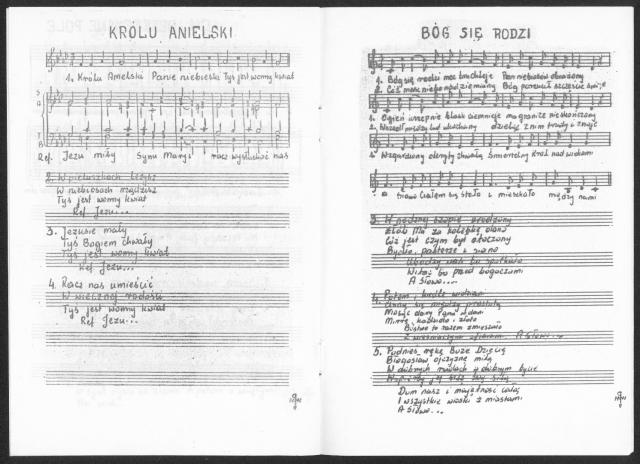 KRÓLU ANIELSKI
1. Królu Anielski Panie niebieski Tyś jest wonny kwiat
S
A
T
B
Ref. Jezu miły Synu Maryi racz wysłuchać nas
2. W pieluszkach leżysz
W niebiosach rządzisz
Tyś jest wonny kwiat
Ref Jezu...
3. Jezusie mały
Tyś Bogiem chwały
Tyś jest wonny kwiat
Ref Jezu...
4. Racz nas umieścić
W wiecznej radości
Tyś jest wonny kwiat
Ref Jezu...
BÓG SIĘ RODZI
1. Bóg się rodzi moc truchleje Pan niebiosów obnażony
2. Cóż masz niebo nad ziemiany Bóg porzucił szczęście
1. Ogień krzepnie blask ciemnieje ma granice nieskończony
2. Wszedł między lud ukochany dzieląc z nim trudy i znoje
1. Wzgardzony okryty chwałą Śmiertelny Król nad wiekami
a Słowo Ciałem się stało i mieszkało między nami
3. W nędznej szopie urodzony
Żłób Mu za kolebkę dano
Cóż jest czym był otoczony
Bydło, pasterze i siano
Ubodzy was to spotkało
Witać Go przed bogaczami
A Słowo...
4. Potem i króle widziani
Cisną się między prostotą
Niosąc dary Panu w dani
Mirrę, kadzidło i złoto
Bóstwo to razem zmieszało
Z wieśniaczymi ofiarami. A Słowo...
5. Podnieś rękę Boże Dziecię
Błogosław ojczyznę miłą
W dobrych radach w dobrym bycie
Wspieraj jej siłę swą siłą
Dom nasz i majętność całą
I wszystkie wioski z miastami
A Słowo...